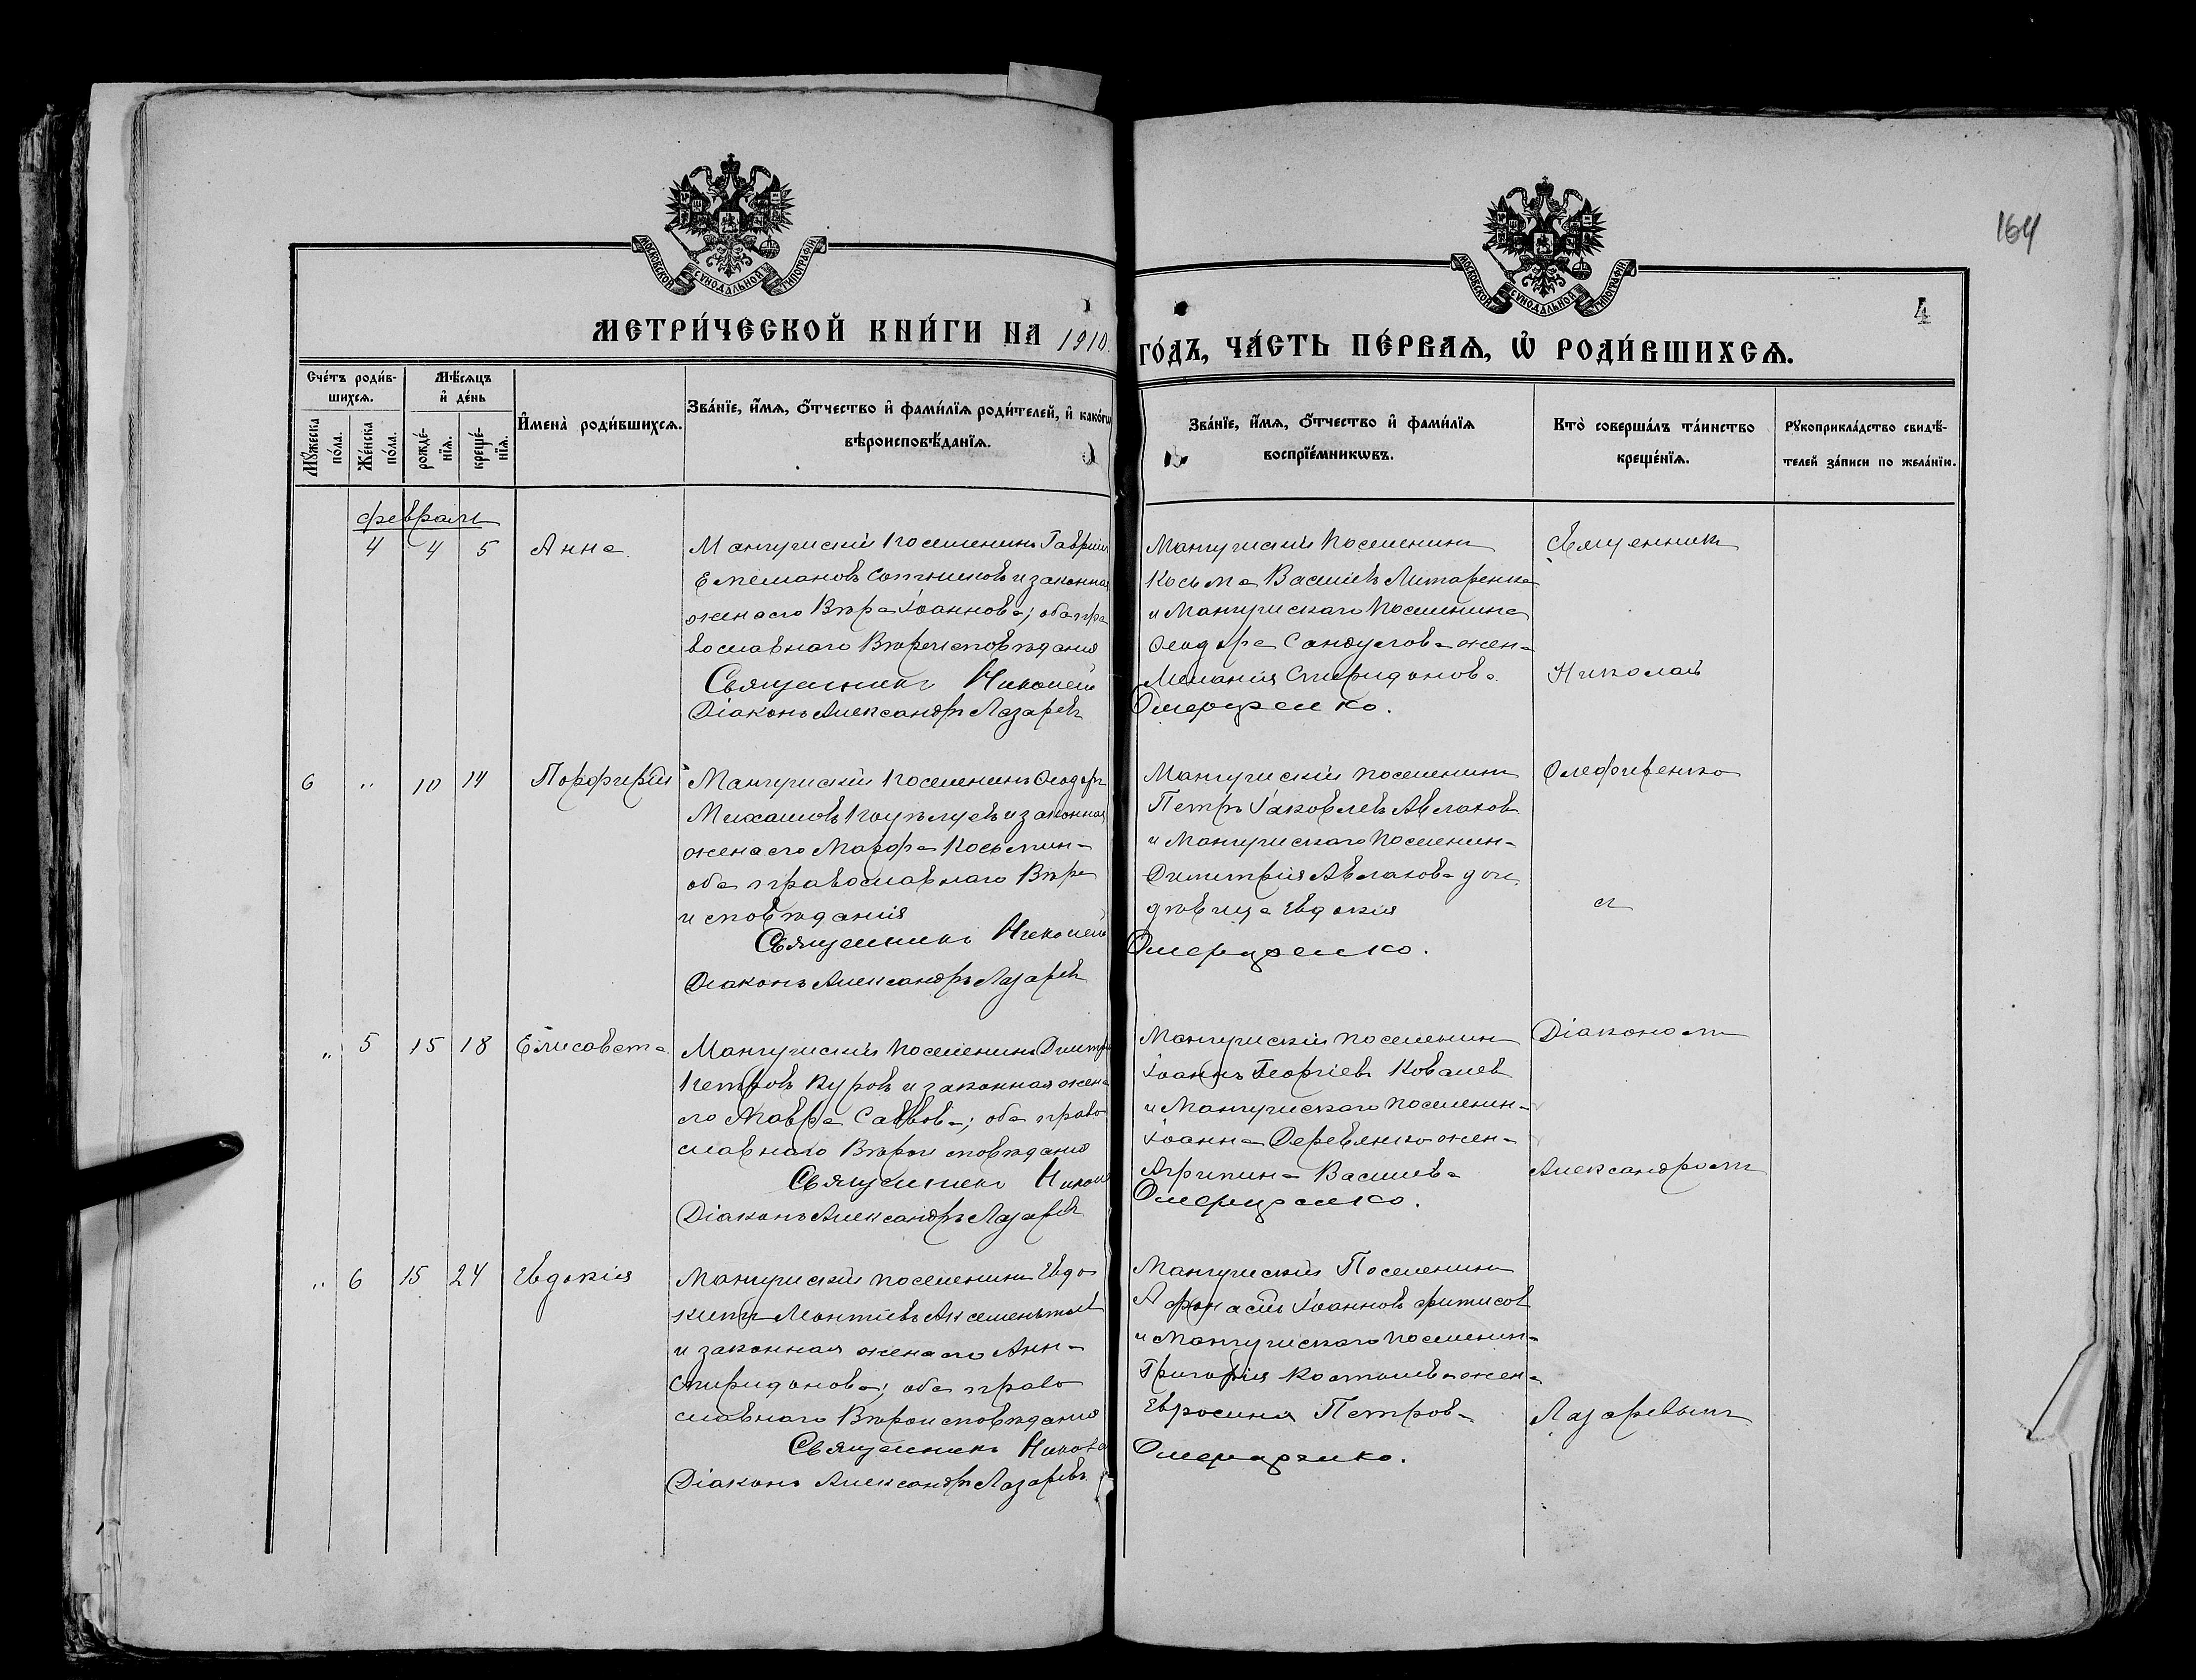 164
4
МОСКОВСКОЙ СУНОДАЛЬНОЙ ТИПОГРАФІИ
МОСКОВСКОЙ СУНОДАЛЬНОЙ ТИПОГРАФІИ
МЕТРИ́ЧЕСКОЙ КНИ́ГИ НА 1910.
ГО́ДЪ, ЧА́СТЬ ПЕ́РВАЯ, Ѡ РОДИ́ВШИХСЯ.
Сче́тъ роди́в-
шихся.
Мѣ́сяцъ
и де́нь
Мꙋ́жеска
по́ла.
Же́нска
по́ла.
рожде́-
нїя.
креще́-
нїя.
Имена̀ роди́вшихся.
Зва́нїе, и́мя, ѻ́тчество и фами́лїя роди́телей, и како́гѡ
вѣроисповѣ́данїя.
Зва́нїе, и́мя, ѻ́тчество и фами́лїя
воспрїе́мникѡвъ.
Кто̀ соверша́лъ та́инство
креще́нїя.
Рꙋкоприкла́дство свидѣ́-
телей за́писи по жела́нїю.
февраль
4 4 5 Анна
Мангушскій поселенинъ Гавріилъ
Емельяновъ Сотниковъ и законная
жена его Вѣра Іоаннова; оба пра
вославнаго Вѣроисповѣданія
Священникъ Николай
Діаконъ Александръ Лазаревъ
Мангушскій поселенинъ
Косьма Васильевъ Литаренко
и Мангушскаго поселенина
Ѳеодора жена
Меланія Спиридонова.
Священникъ
Николай
6 " 10 14 Порфирій
Мангушскій поселенинъ Ѳеодоръ
Михаиловъ и законная
жена его Марфа Косьмина
оба православнаго Вѣро
исповѣданія
Священникъ Николай
Діаконъ Александръ Лазаревъ
Мангушскій поселенинъ
Петръ Іаковлевъ Авлаковъ
и Мангушскаго поселенина
Димитрія Авлакова дочь
дѣвица Евдокія
съ
" 5 15 18 Елисавета
Мангушскій поселенинъ Димитрій
Петровъ Куровъ и законная жена
его Мавра Саввова; оба право
славнаго Вѣроисповѣданія
Священникъ Николай
Діаконъ Александръ Лазаревъ
Мангушскій поселенинъ
Іоаннъ Георгіевъ Ковалевъ
и Мангушскаго поселенина
Іоанна Деревянко жена
Агрипина Васильева
Діакономъ
Александромъ
" 6 15 24 Евдокія
Мангушскій поселенинъ Евдо
кимъ
и законная жена его Анна
Спиридонова; оба право
славнаго Вѣроисповѣданія
Священникъ Никола
Діаконъ Александръ Лазаревъ
Мангушскій Поселенинъ
Афанасій Іоанновъ Фитисовъ
и Мангушскаго поселенина
Григорія жена
Евросинія Петрова
Лазаревымъ